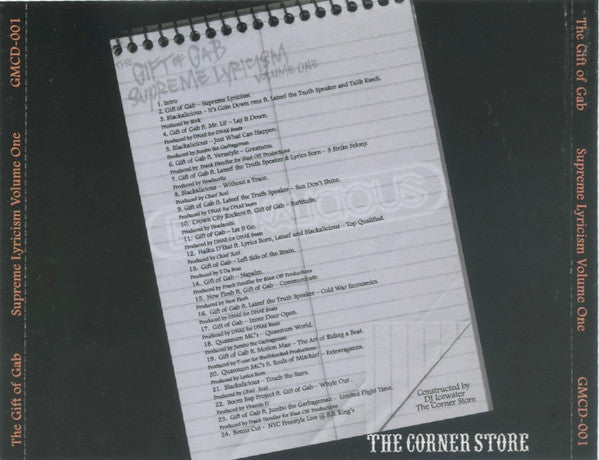 GMCD-001
Supreme Lyricism Volume One
The Gift of Gab
THE
GIFT OF GAB
SUPREME LYRICISM
VOLUME ONE
1. Intro
2. Gift of Gab – Supreme Lyricism
3. Blackalicious – It's Goin Down rmx ft. Lateef the Truth Speaker and Talib Kweli.
Produced by Rink
4. Gift of Gab ft. Mr. Lif – Lay It Down.
Produced by DNAE for DNAE Beats
5. Blackalicious – Just What Can Happen.
Produced by Jumbo the Garbageman
6. Gift of Gab ft. Versatyle – Greatness.
Produced by Frank Hendler for Blast Off Productions
7. Gift of Gab ft. Lateef the Truth Speaker & Lyrics Born – 3 Strike Felony.
Produced by Headnotic
8. Blackalicious – Without a Trace.
Produced by Chief Xcel
9. Gift of Gab ft. Lateef the Truth Speaker – Sun Don't Shine.
Produced by DNAE for DNAE beats
10. Crown City Rockers ft. Gift of Gab – Fortitude.
Produced by Headnotic
11. Gift of Gab – Let it Go.
Produced by DNAE for DNAE Beats
12. Haiku D'Etat ft. Lyrics Born, Lateef and Blackalicious – Top Qualified.
Produced by Chief Xcel
13. Gift of Gab – Left Side of the Brain.
Produced by
14. Gift of Gab – Napalm.
Produced by Frank Hendler for Blast Off Productions
15. New Flesh ft. Gift of Gab – Communicate.
Produced by New Flesh
16. Gift of Gab ft. Lateef the Truth Speaker – Cold War Economics.
Produced by DNAE for DNAE Beats
17. Gift of Gab – Inner Door Open.
Produced by DNAE for DNAE Beats
18. Quantum MC's – Quantum World.
Produced by Jumbo the Garbageman
19. Gift of Gab ft. Motion Man – The Art of Riding a Beat.
Produced by T-one for Shellshocked Productions
20. Quantum MC's ft. Souls of Mischief – Extravaganza.
Produced by Lyrics Born
21. Blackalicious – Touch the Stars.
Produced by Chief Xcel
22. Boom Bap Project ft. Gift of Gab – Whyle Out.
Produced by Vitamin D
23. Gift of Gab ft. Jumbo the Garbageman – Limited Flight Time.
Produced by Frank Hendler for Blast Off Productions
24. Bonus Cut – NYC Freestyle Live @ B.B. King's
BLACKALICIOUS
Constructed by
DJ Icewater
The Corner Store
THE CORNER STORE
The Gift of Gab
Supreme Lyricism Volume One
GMCD-001